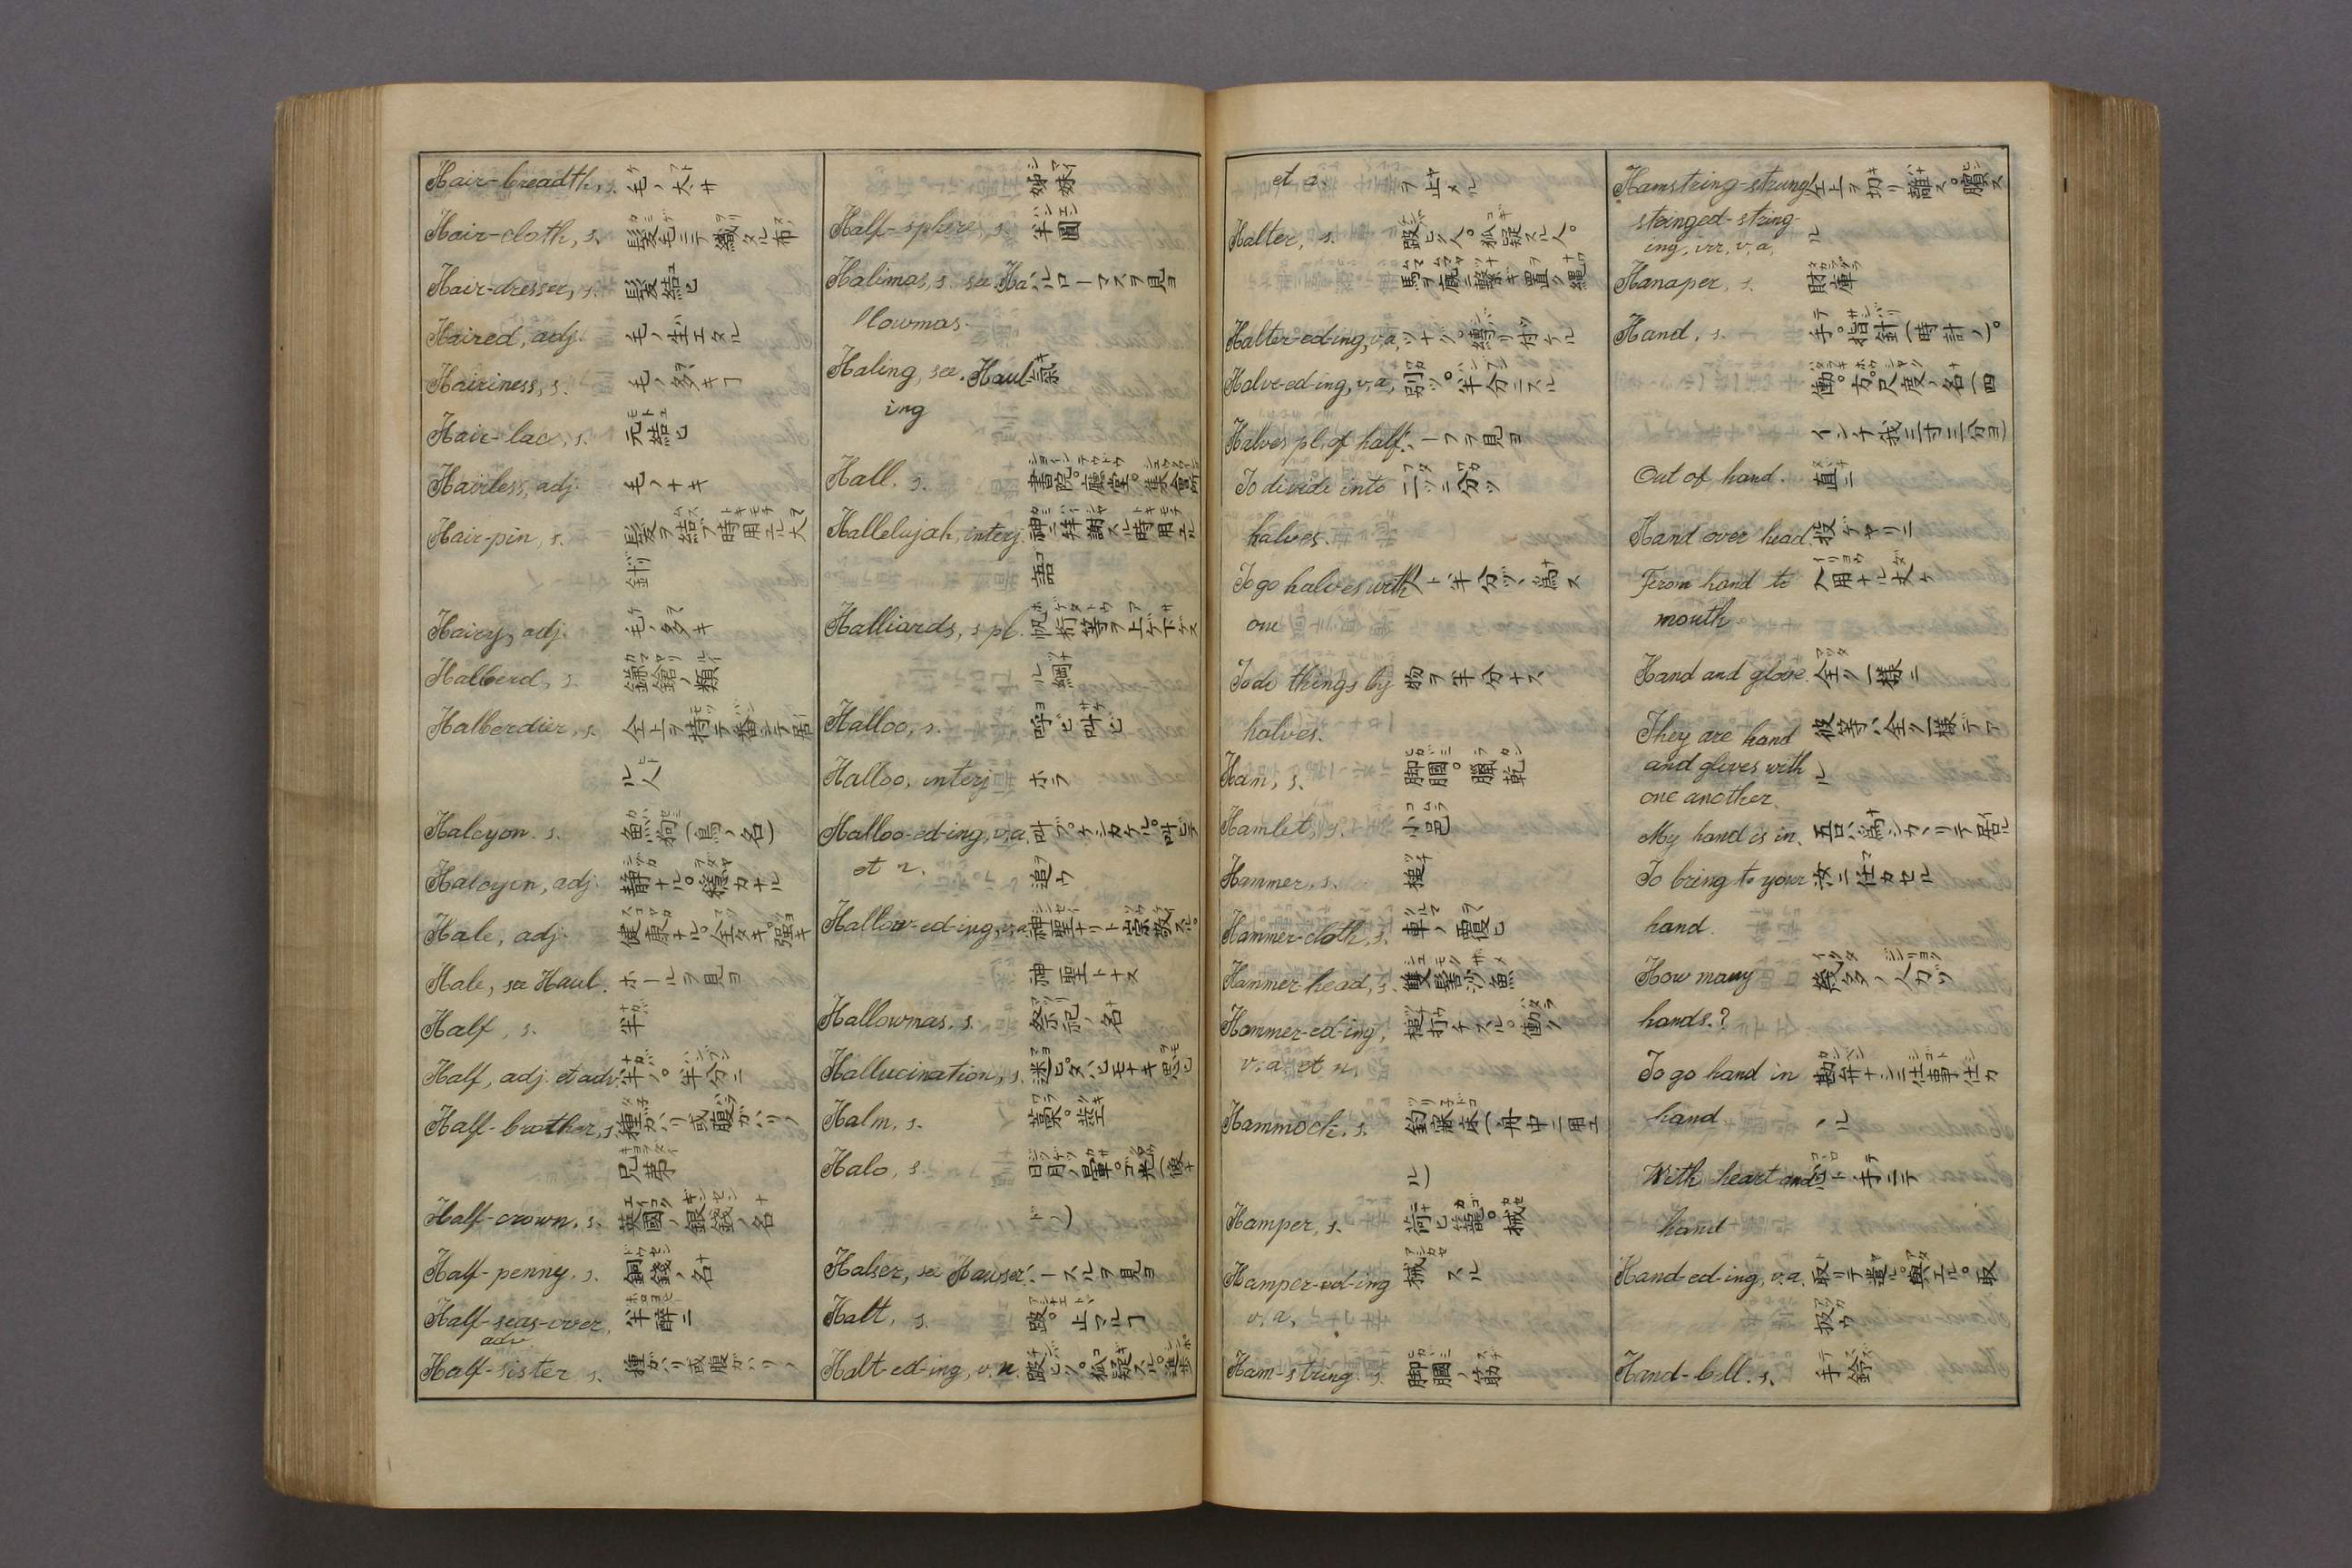 Hair-breadth, s. 毛ノ太サ
Hair-cloth, s. 髪毛ニテ織タル布
Hair-dresser, s. 髪結ヒ
Haired, adj. 毛ノ生エタル
Hairiness, s. 毛ノ多キヿ
Hair-lace, s. 元結ヒ
Hairless, adj. 毛ノナキ
Hair-pin, s. 髪ヲ結フ時用ユル大
針
Hairy, adj. 毛ノ多キ
Halberd, s. 鎌鎗ノ類
Halberdier, s. 仝上ヲ持テ番シテ居
ル人
Halcyon. s. 魚狗(鳥ノ名)
Halcyon, adj. 静ナル。穏カナル
Hale, adj. 健康ナル。全タキ。強キ
Hale, see Haul. ホールヲ見ヨ
Half, s. 半
Half, adj. et adv. 半ノ。半分ニ
Half-brother, s. 種ガハリ或腹ガハリノ
兄弟
Half-crown, s. 英國ノ銀錢ノ名
Half-penny. s. 銅錢ノ名
Half-seas-over, 半醉ニ
adv.
Half-sister, s. 種ガハリ或腹ガハリノ
姉妹
Half-sphere, s. 半圓
Halimas, s. see Ha- ハルローマスヲ見ヨ
llowmas.
Haling, see. Haul
ing
Hall. s. 書院。廳堂。集會所
Hallelujah, interj. 神ニ拜謝スル時用ユル
語
Halliards, s. pl. 帆桁等ヲ上ゲ下ゲス
ル綱
Halloo, s. 呼ビ叫ビ
Halloo, interj ホラ
Halloo-ed-ing, v.a. 叫ブ。ケシカケル。叫ビテ
et n. 追ウ
Hallow-ed-ing, v.a. 神聖ナリト崇敬スル。
神聖トナス
Hallowmas, s. 祭祀ノ名
Hallucination, s. 迷ヒ。タハヒモナキ思ヒ
Halm, s. 藁。莖
Halo, s. 日月ノ暈。ゴ光(佛ナ
ドノ)
Halser, see Hauser. ースルヲ見ヨ
Halt, s. 跛。止マルヿ
Halt-ed-ing, v.n. 跛ヒク。狐疑スル。進歩
et a. ヲ止メル
Halter, s. 跛ヒク人。狐疑スル人。
馬ヲ厩ニ繋ギ置ク縄
Halter-ed-ing, v.a. ツナグ。縛リ付ケル
Halve-ed-ing, v.a. 別ツ。半分ニスル
Halves pl. of half. ーフヲ見ヨ
To divide into 二ツニ分ツ
halves.
To go halves with 人ト半分ヅヽ為ス
one
To do things by 物ヲ半分ナス
halves.
Ham, s. 脚膕。臘乾
Hamlet, s. 小邑
Hammer, s. 槌
Hammer-cloth, s. 車ノ覆ヒ
Hammer head, s. 雙髻沙魚
Hammer-ed-ing, 槌打チスル。働ク
v. a et n.
Hammock, s. 釣寐床(舟中ニ用ユ
ル)
Hamper, s. 荷ヒ籠。械
Hamper-ed-ing 械スル
v. a.
Ham-string s. 脚膕ノ筋
Hamstring-strung 仝上ヲ切リ離ス。膭ス
stringed-string- ル
ing, irr. v. a.
Hanaper, s. 財庫
Hand, s. 手。指針(時計ノ)。
働。方。尺度ノ名(四
インチ我三寸三分ヨ)
Out of hand. 直ニ
Hand over head. 投ゲヤリニ
From hand to 入用ナル丈ケ
mouth
Hand and glove. 全ク一様ニ
They are hand 彼等ハ全ク一様デア
and gloves with ル
one another.
My hand is in. 吾ハ為シカヽリテ居ル
To bring to your 汝ニ任カセル
hand.
How many 幾多ノ人力ヅ
hands.?
To go hand in 勘弁ナシニ仕事仕カ
hand ヽル
With heart and 心ト手ニテ
hand
Hand-ed-ing, v.a. 取リテ遣ル。與エル。取
扱ウ
Hand-bell. s. 手鈴